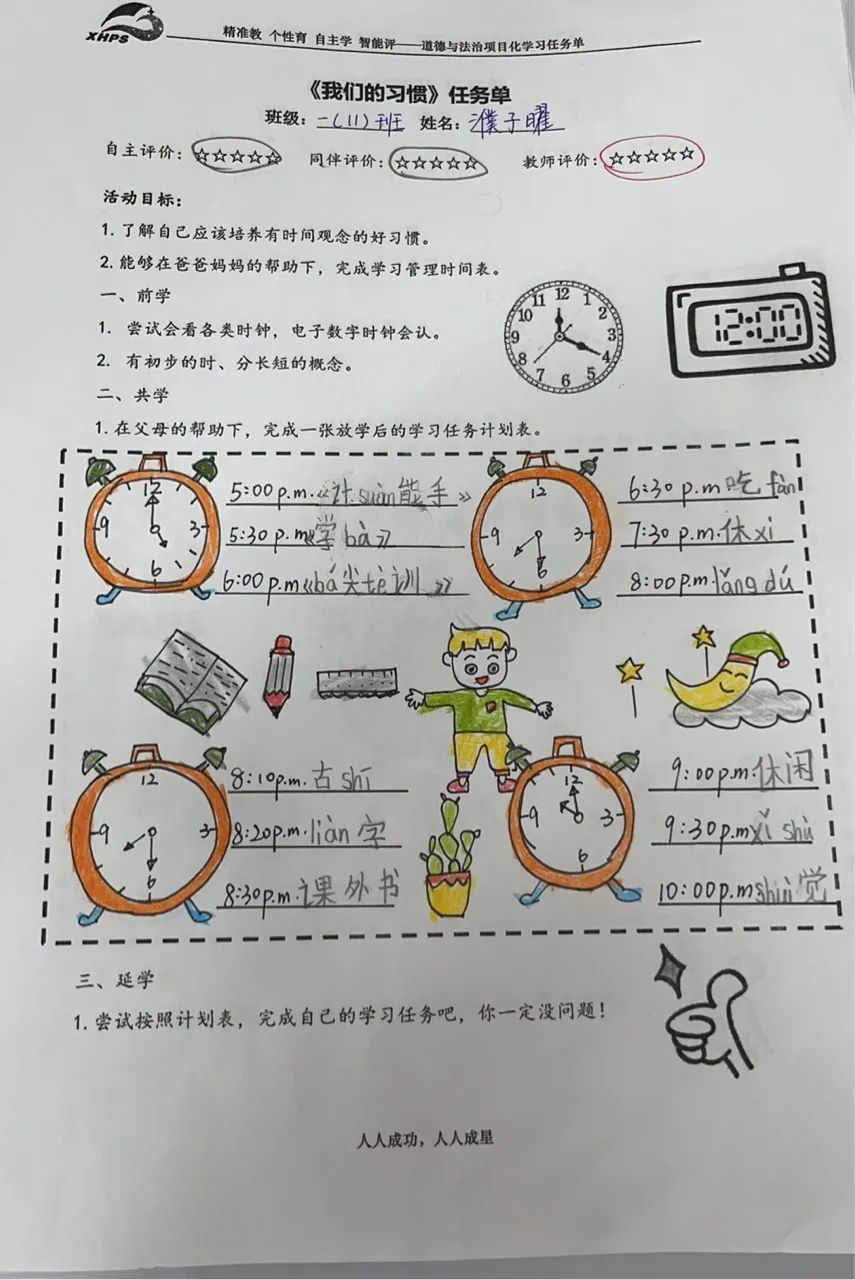 XHPS
精准教 个性育 自主学 智能评——道德与法治项目化学习任务单
《我们的习惯》任务单
班级：二（11）班 姓名：濮子曜
自主评价：☆☆☆☆☆ 同伴评价：☆☆☆☆☆ 教师评价：☆☆☆☆☆
活动目标：
1. 了解自己应该培养有时间观念的好习惯。
2. 能够在爸爸妈妈的帮助下，完成学习管理时间表。
一、前学
1. 尝试会看各类时钟，电子数字时钟会认。
2. 有初步的时、分长短的概念。
12 1 2 3 4 5 6 7 8 9 10 11
12:00
二、共学
1. 在父母的帮助下，完成一张放学后的学习任务计划表。
12 3 6 9
5:00 p.m.《计suàn能手》
5:30 p.m《学bà》
6:00 p.m《bá尖tè训》
12 3 6 9
6:30 p.m吃fàn
7:30 p.m.休xi
8:00 p.m.lǎng dú
12 3 6 9
8:10p.m.古shī
8:20p.m.liàn字
8:30p.m.课外书
12 3 6 9
9:00p.m.休闲
9:30p.mxǐ shù
10:00p.mshuì觉
三、延学
1. 尝试按照计划表，完成自己的学习任务吧，你一定没问题！
人人成功，人人成星